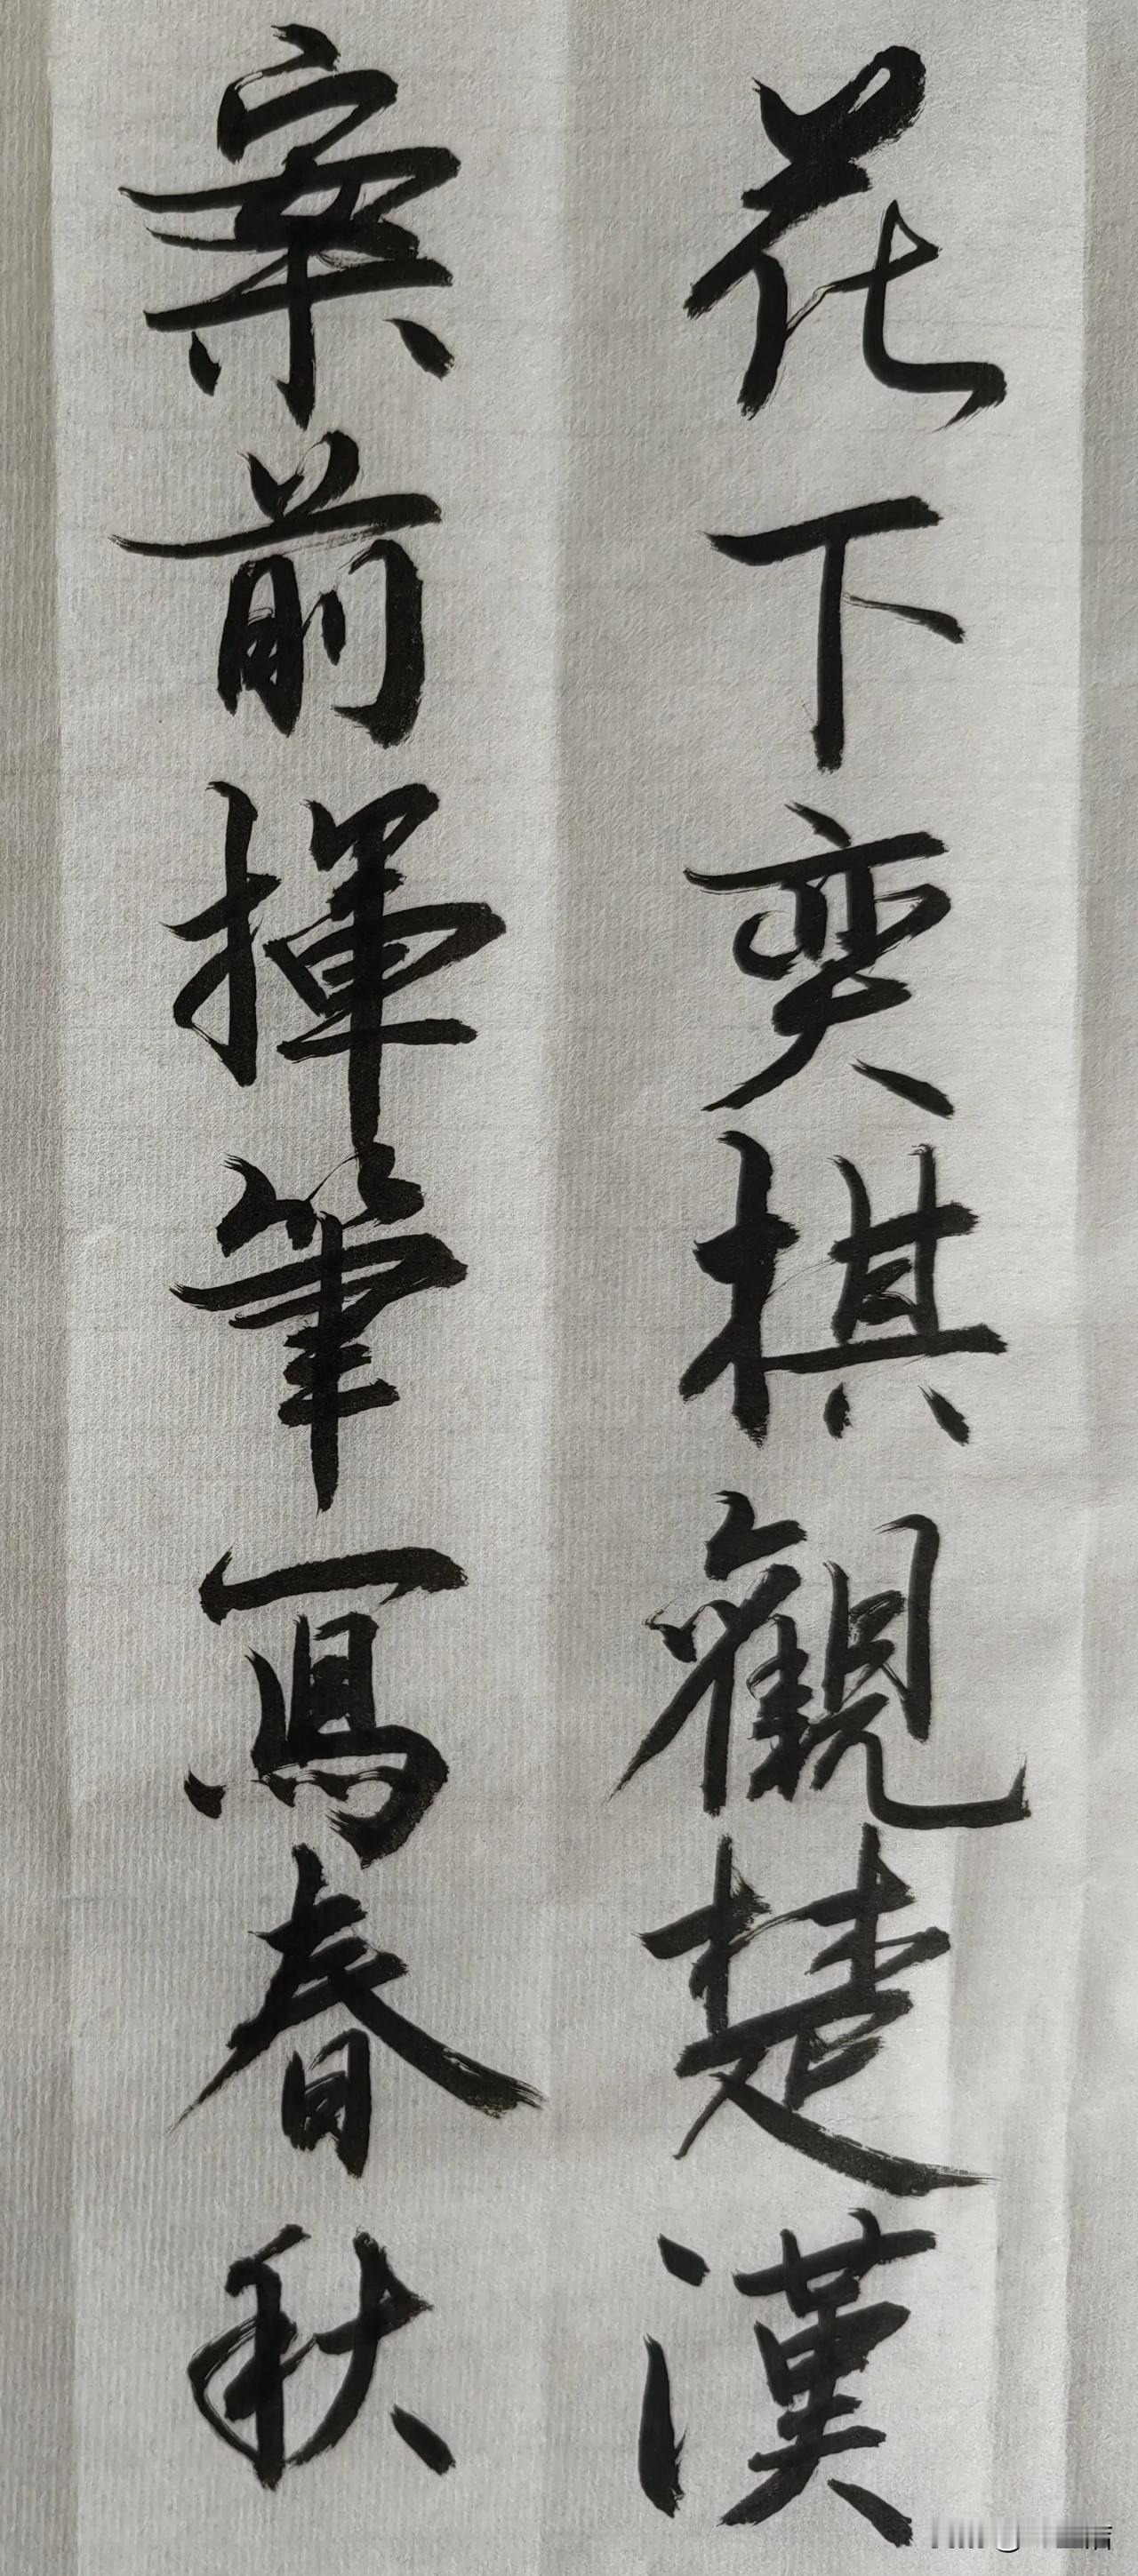 花下奕棋觀楚漢
案前揮筆寫春秋